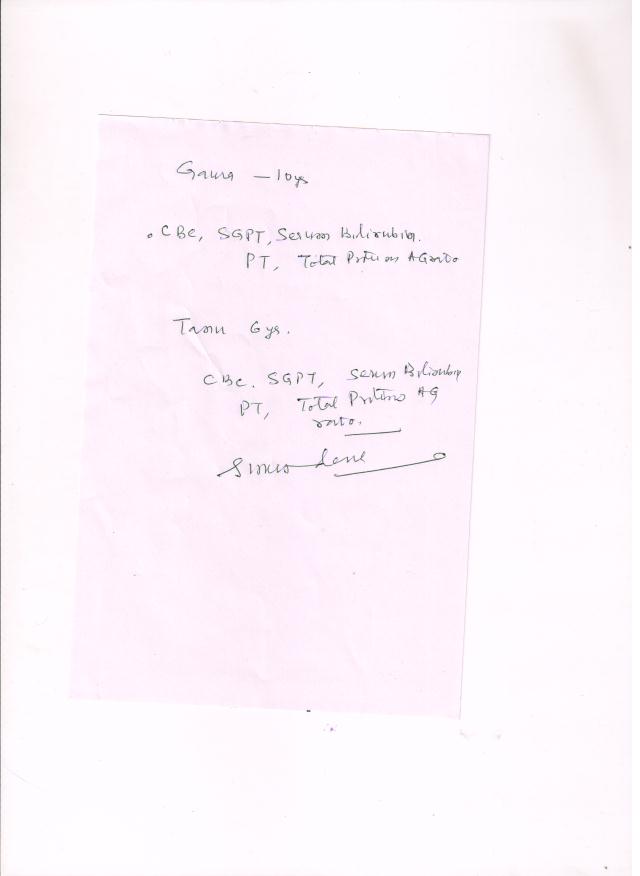 Gaura — 10ys
. CBC, SGPT, Serum Bilirubin.
PT, Total Protein AG ratio
Tanu 6ys.
CBC. SGPT, Serum Bilirubin
PT, Total Protein AG
ratio.